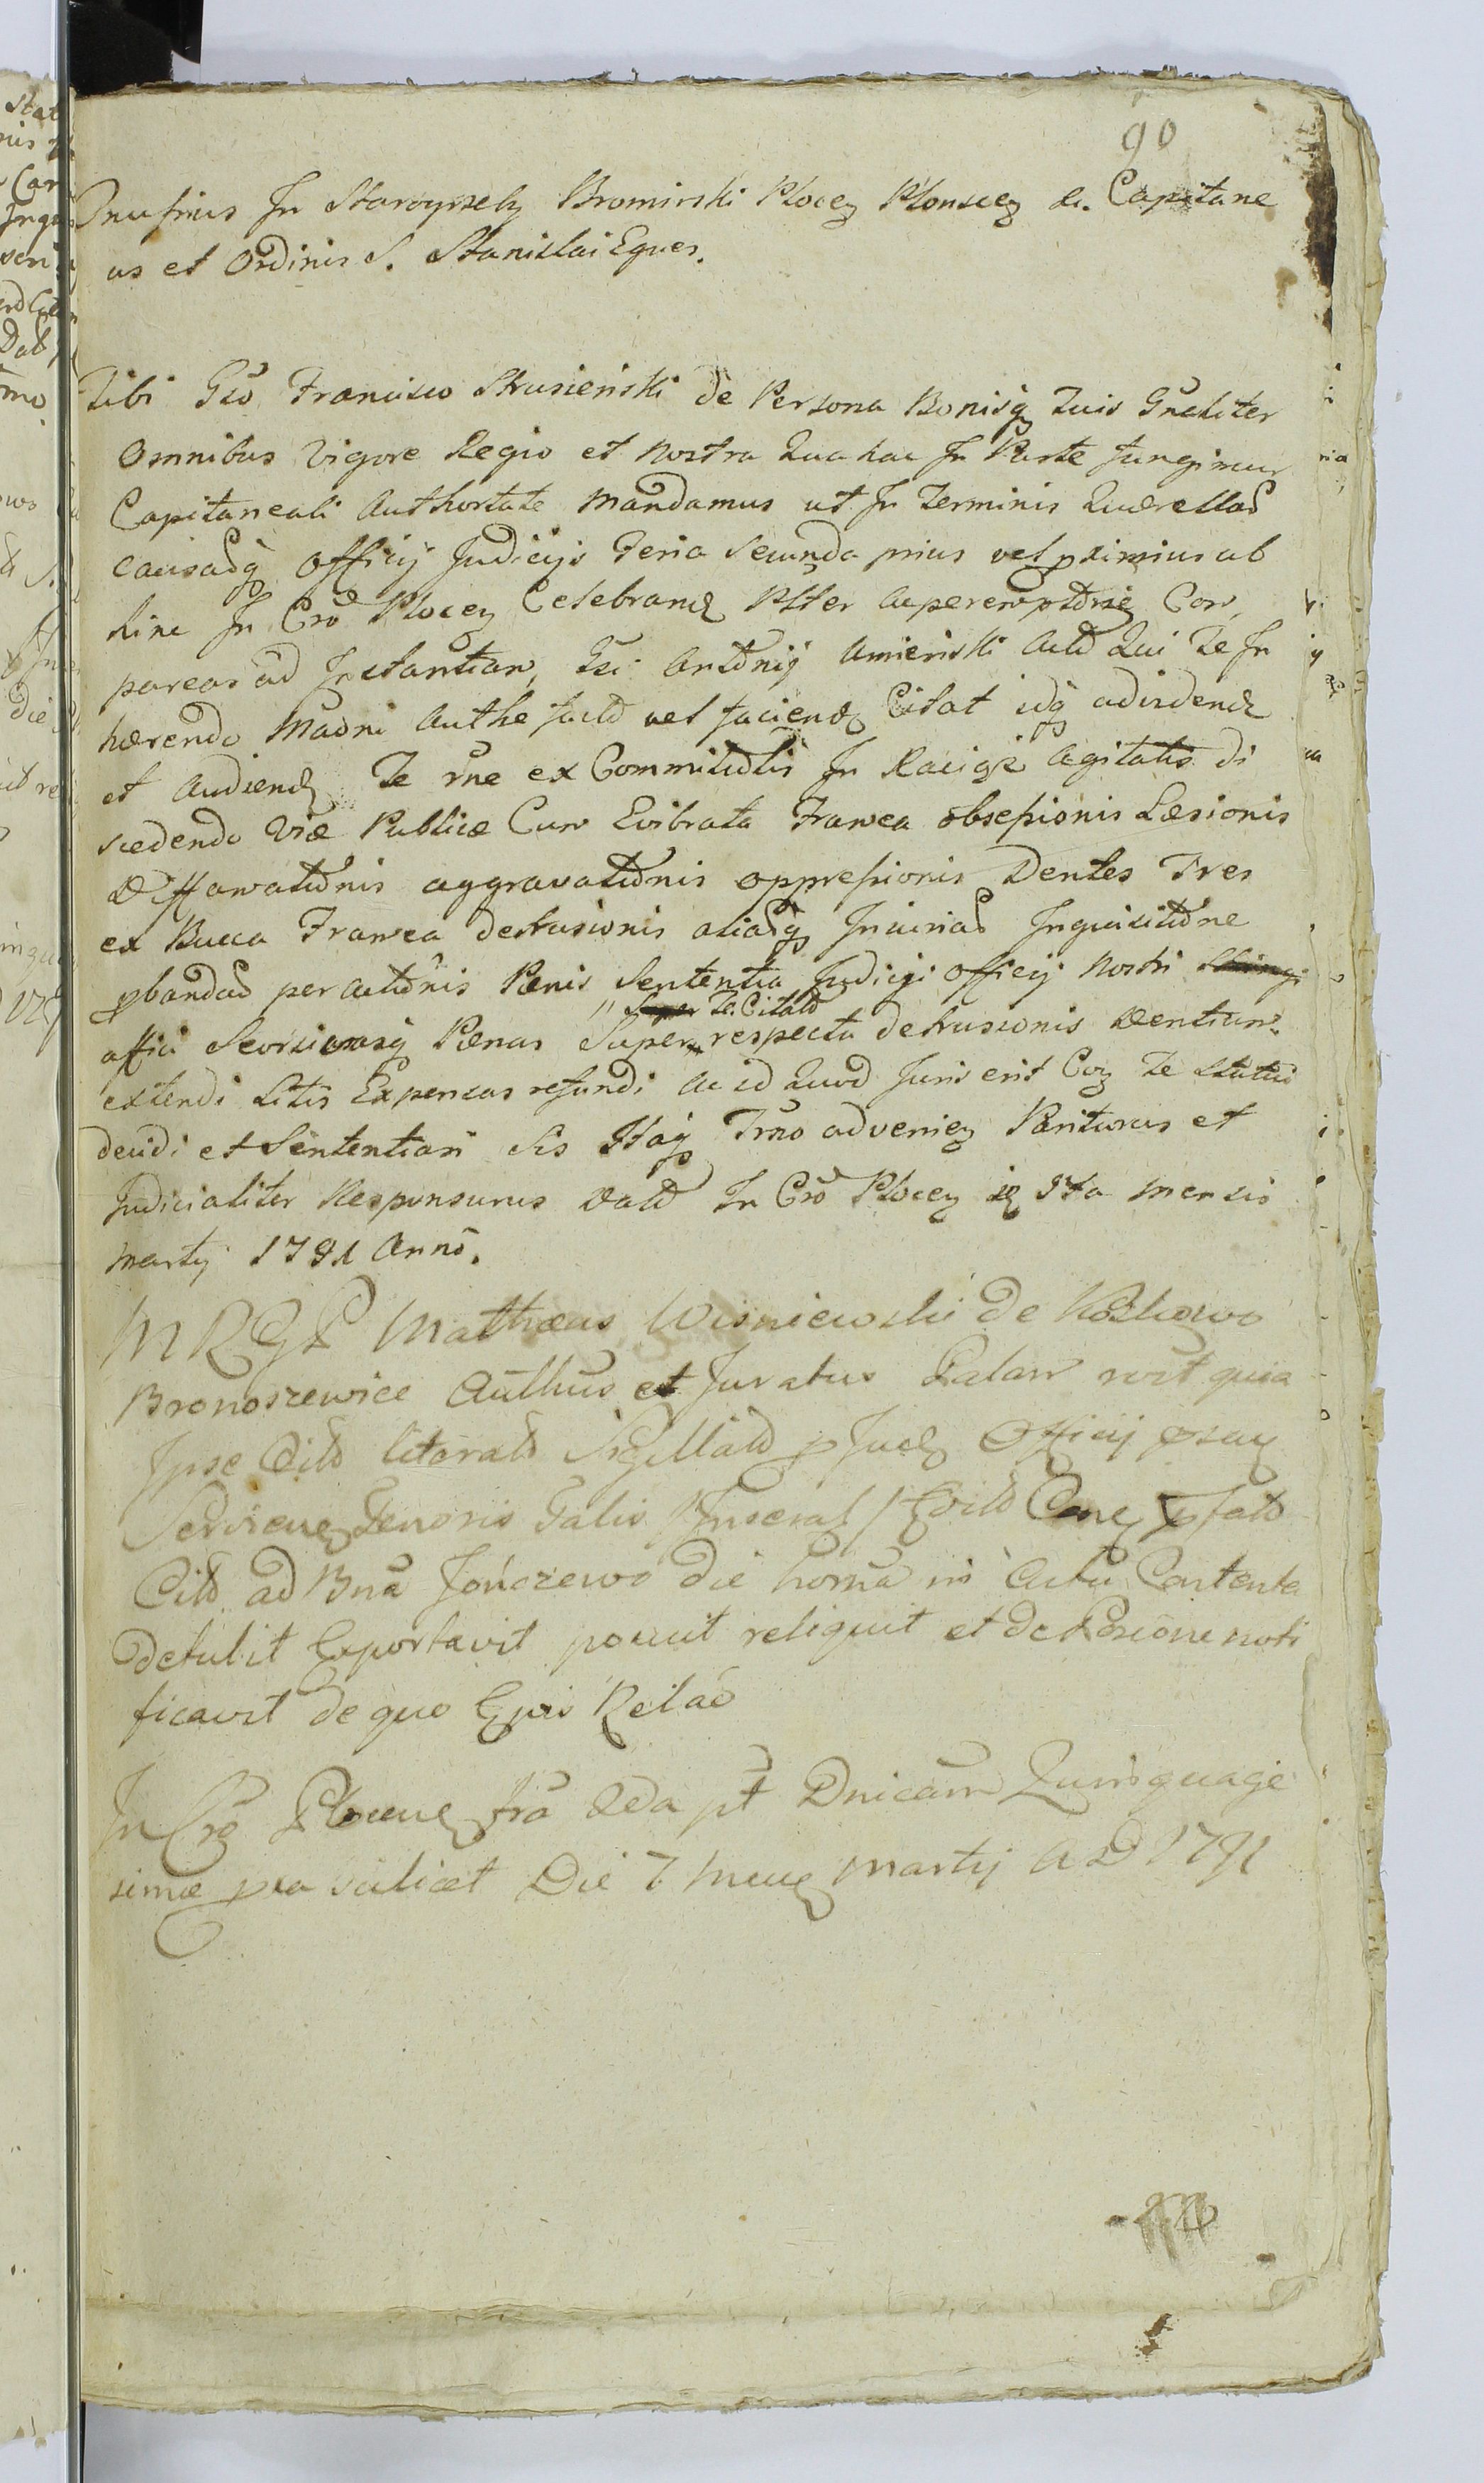 90
Onufrius In Starorypsely Bromirski Plocen Plonscen &c. Capitane
us et Ordinis S. Stanislai Eques.
Tibi Gso Francisco Strusieński de Persona Bonisq Tuis Gnaliter
Omnibus Vigore Regio et Nostra Qua hac In Parte fungimur
Capitaneali Authortate Mandamus ut In Terminis Querellar
causarq Officij Judicijs Feria Secunda prius vel pximius ab
hinc In Cro Plocen Celebrand Plter ac peremptorie Com
pareas ad Instantiam, Gsi Antonij Amieriski Act Qui Te In
hærendo Madni Authe facto vel faciend Citat idq ad videnda
et Audiend Te rne ex Commititis In Raciąż Agitatis di
scedendo Viæ Publicæ Cum Evibrata Framea obsessionis Læsionis
Diffamationis aggravationis oppressionis Dentes Tres
ex Bucca Framea detrusionis aliarq Iniuriar Inquisitione
pbandar per actionis Pænis Sententia Judicij Officij Nostri
Te Citato
affici Seviriorasq Pænas Super respectu detrusionis Dentium
extendi Litis Expensas refundi ac id Quod Juris erit Coq Te Statui
decidi et Sententiari Sis Itaq Trno adveniet Pariturus et
Judicialiter Responsurus Dat In Cro Plocen Sta mensis
Martij 1791 Anno.
MRGP Mathæus Wisniewski de Koskowo
Bronoszewice Authus et Juratus Palam rvit quia
Ipse Cito literato Sigillato p Jud Officij psen
Servien Tenoris Talis Inserat
Cito ad Bna Jończewo die horna in Actu Contenta
Detulit Exportavit posuit reliquit et de Posione noti
ficavit de quo Ejus Relao
In Cro Plocen fra 2da pt Dnicam Quinquage
simæ pxa scilicet Die 7 Mens Martij A D 1791